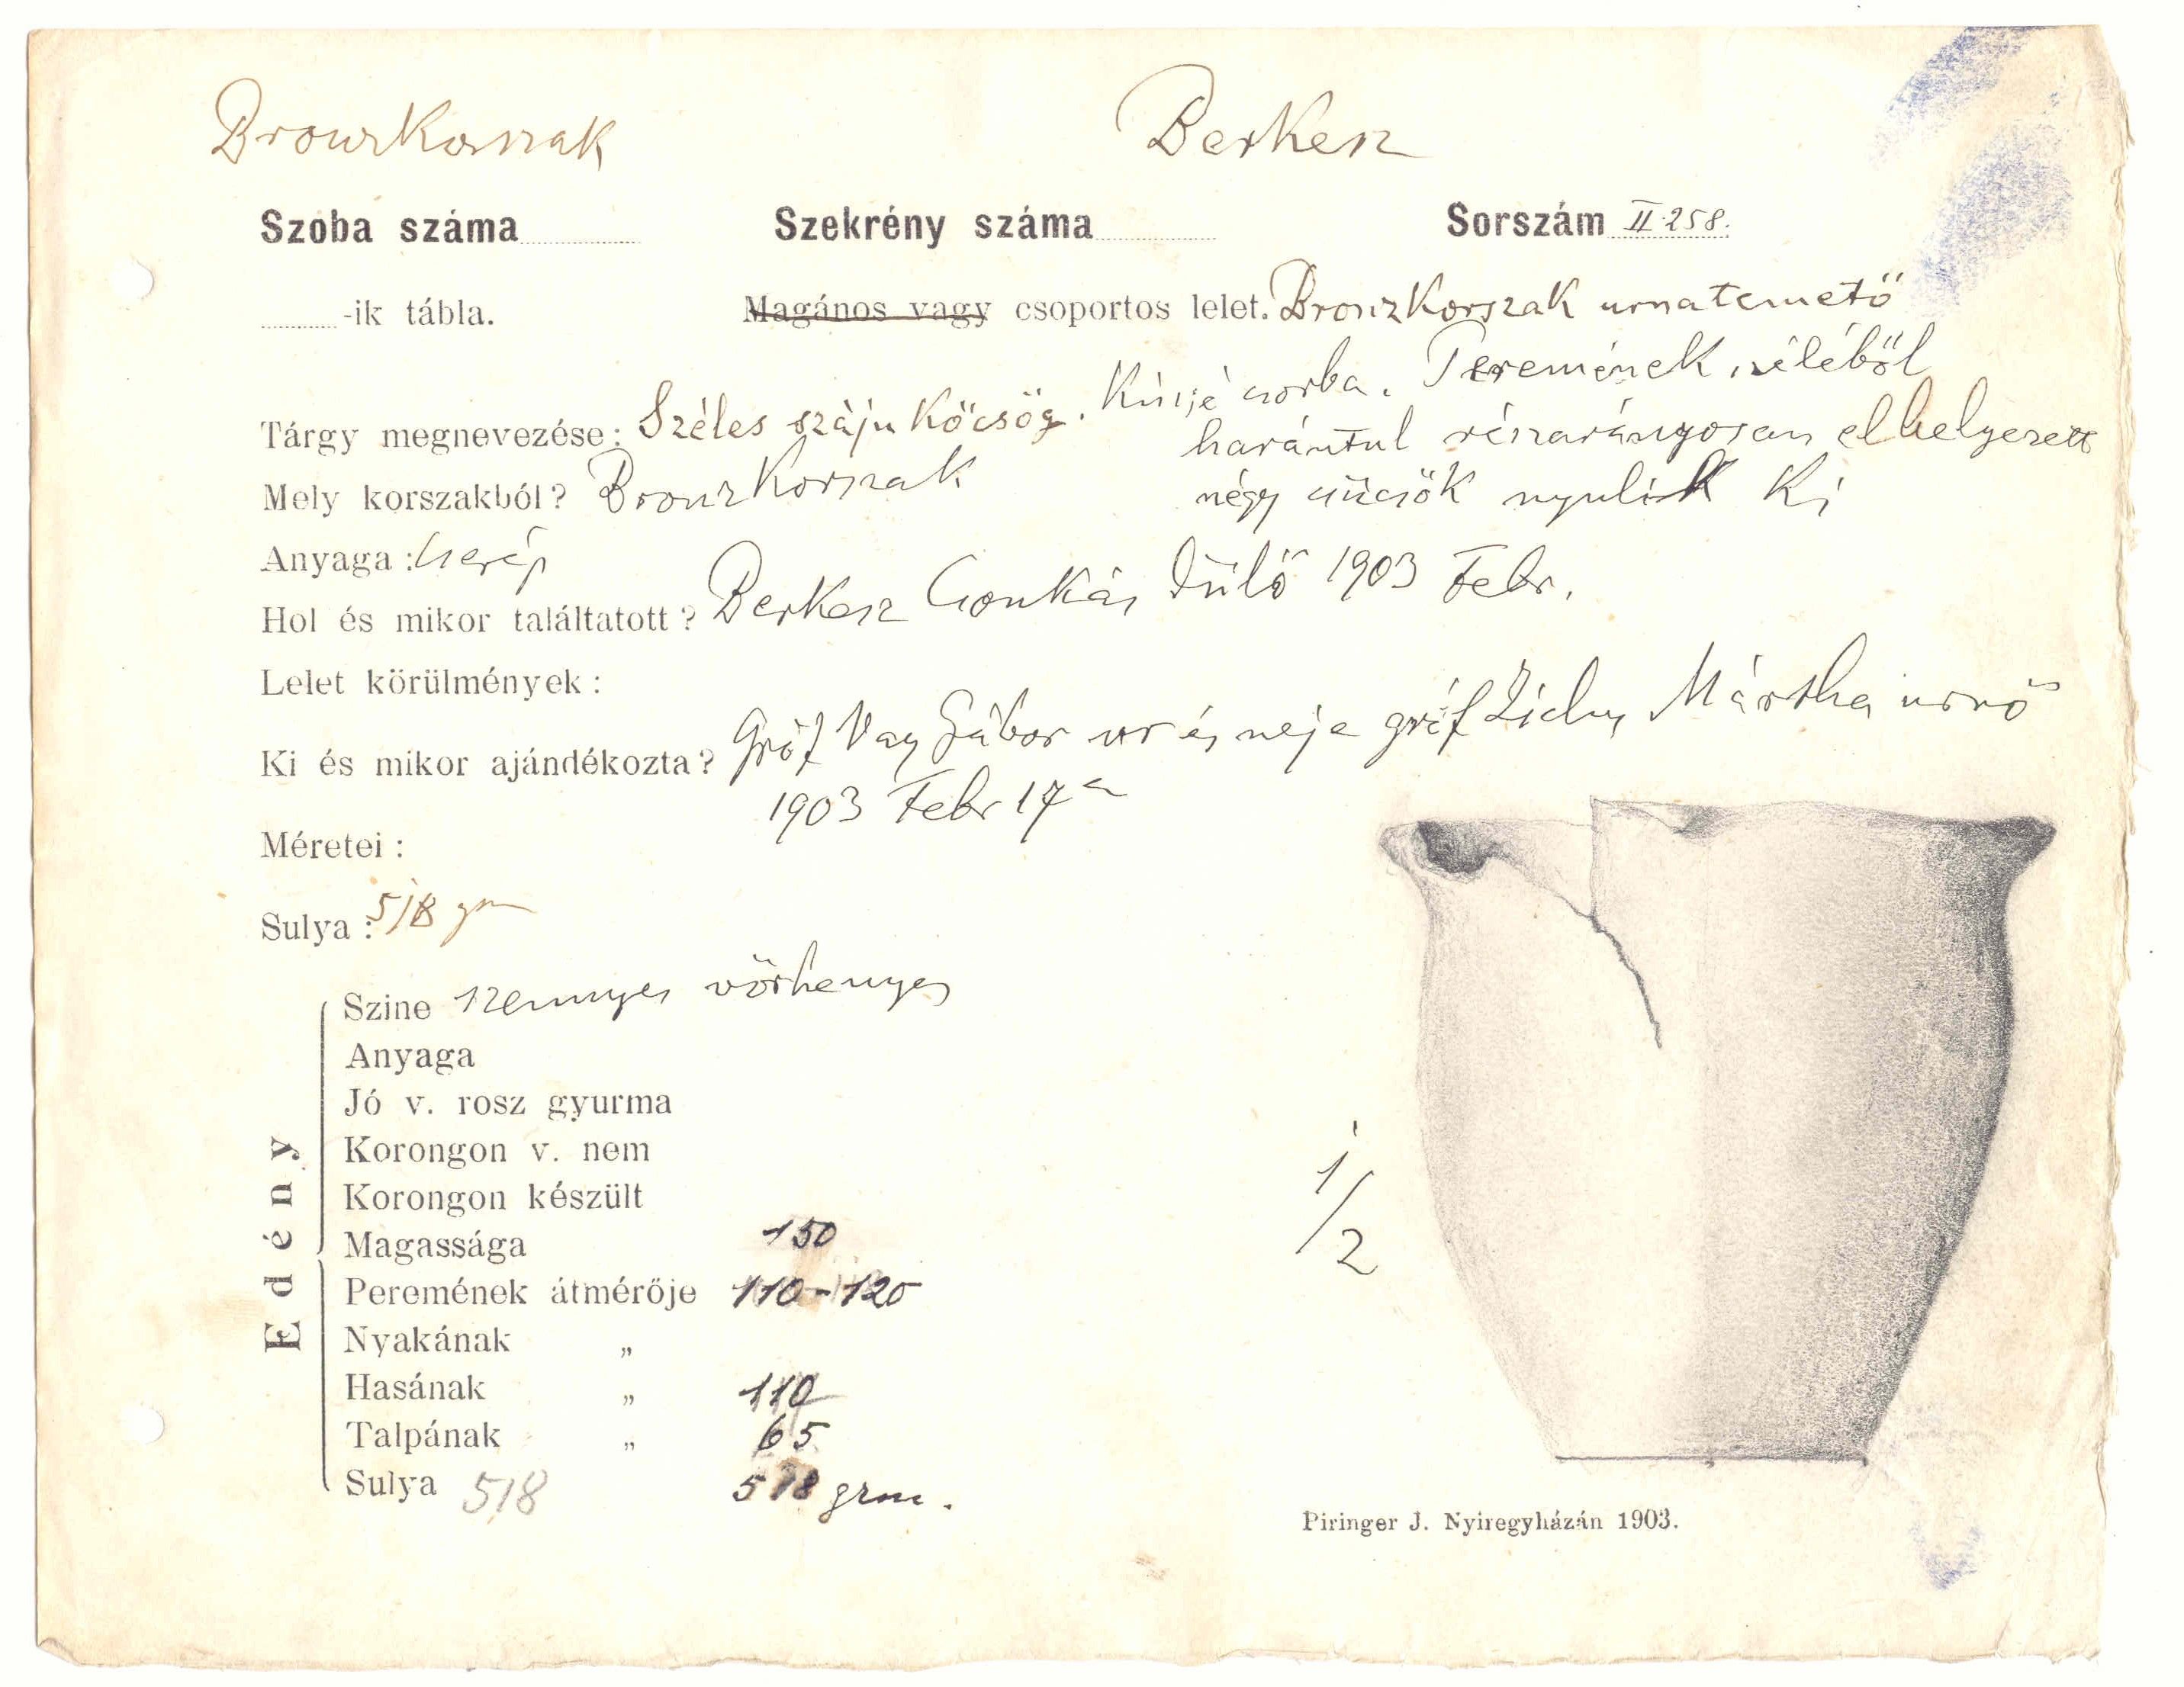 Bronzkorszak Berkesz
Szoba száma Szekrény száma Sorszám II. 258.
-ik tábla. Magános vagy csoportos lelet. Bronzkorszak urnatemető
Tárgy megnevezése: Széles száju köcsög. Kissé csorba. Peremének széléből
harántul részarányosan elhelyezett
Mely korszakból? Bronzkorszak négy csücsök nyulik ki
Anyaga: cserép
Hol és mikor találtatott? Berkesz Csonkás dülő 1903 Febr.
Lelet körülmények:
Ki és mikor ajándékozta? Gróf Vay Gábor ur és neje gróf Zichy Mártha urnő
1903 Febr 17 a
Méretei:
Sulya: 518 gm
Edény
Szine szennyes vörhenyes
Anyaga
Jó v. rosz gyurma
Korongon v. nem
Korongon készült
Magassága 150
Peremének átmérője 110-120
Nyakának "
Hasának " 110
Talpának " 65
Sulya 518 518 grm.
1/2
Piringer J. Nyiregyházán 1903.